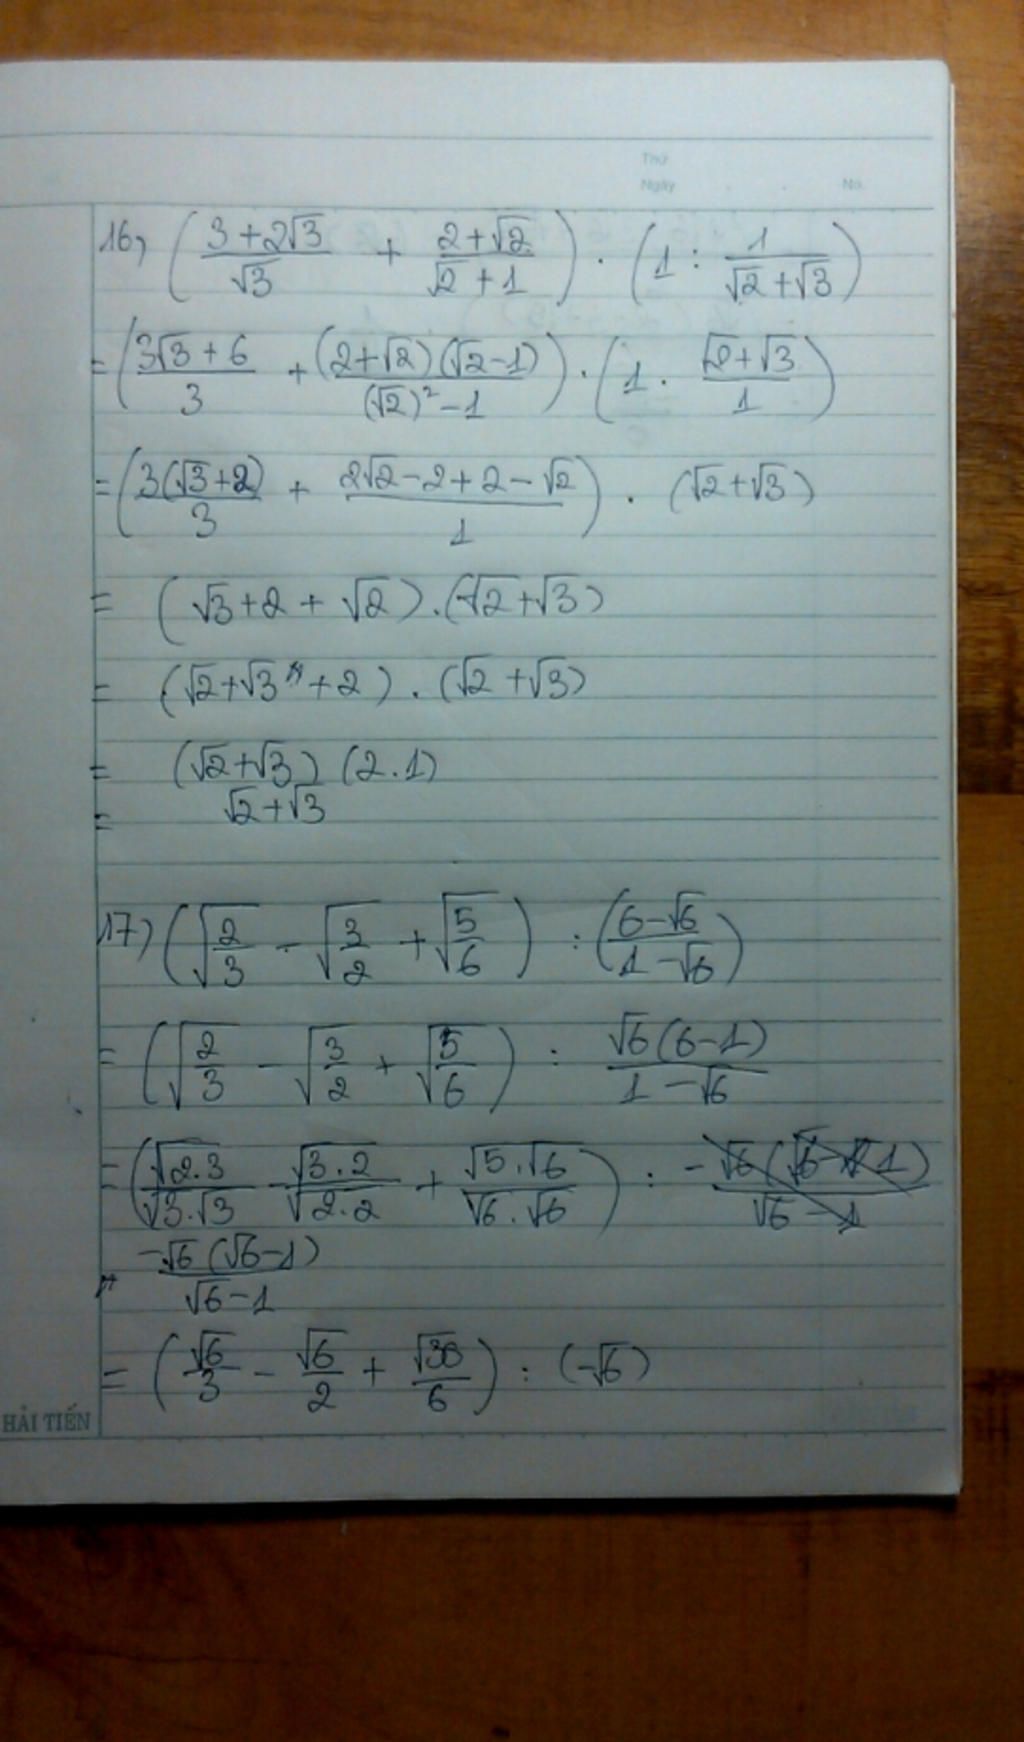 Thứ
Ngày . . No.
16, ((3+2√3)/√3 + (2+√2)/(√2+1)) . (1 : 1/(√2+√3))
= ((3√3+6)/3 + (2+√2)(√2-1)/((√2)²-1)) . (1 . (√2+√3)/1)
= (3(√3+2)/3 + (2√2-2+2-√2)/1) . (√2+√3)
= (√3+2+√2).(√2+√3)
= (√2+√3+2).(√2+√3)
= (√2+√3)(2.1)
= √2+√3
17) (√(2/3) - √(3/2) + √(5/6)) : ((6-√6)/(1-√6))
= (√(2/3) - √(3/2) + √(5/6)) : √6(6-1)/(1-√6)
= (√(2.3)/(√3.√3) - √(3.2)/√(2.2) + (√5.√6)/(√6.√6)) : -√6(√6-1)/(√6-1)
-√6(√6-1)/(√6-1)
= (√6/3 - √6/2 + √30/6) : (-√6)
HẢI TIẾN